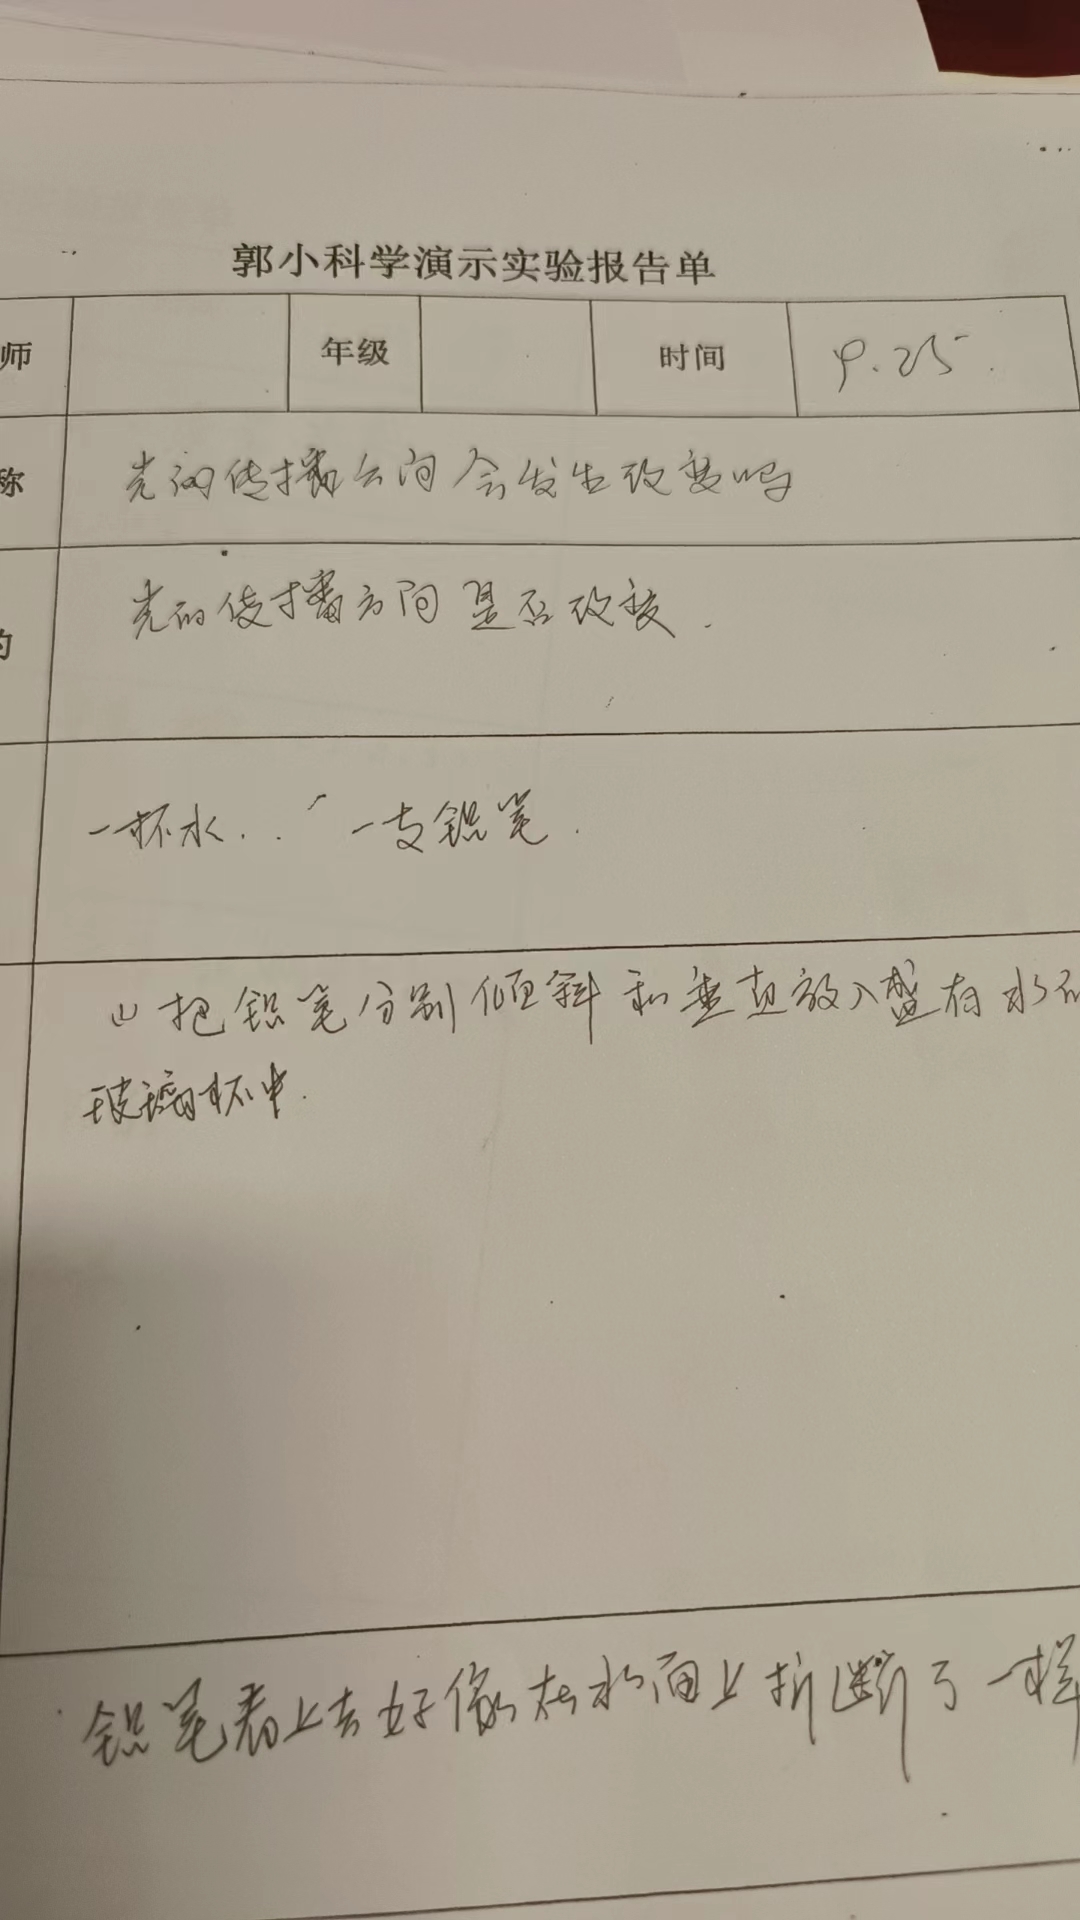 郭小科学演示实验报告单
师 年级 时间 9.25.
称 光的传播方向会发生改变吗
的 光的传播方向是否改变.
一杯水.. 一支铅笔.
(1) 把铅笔分别倾斜和垂直放入盛有水的
玻璃杯中.
铅笔看上去好像在水面上折断了一样